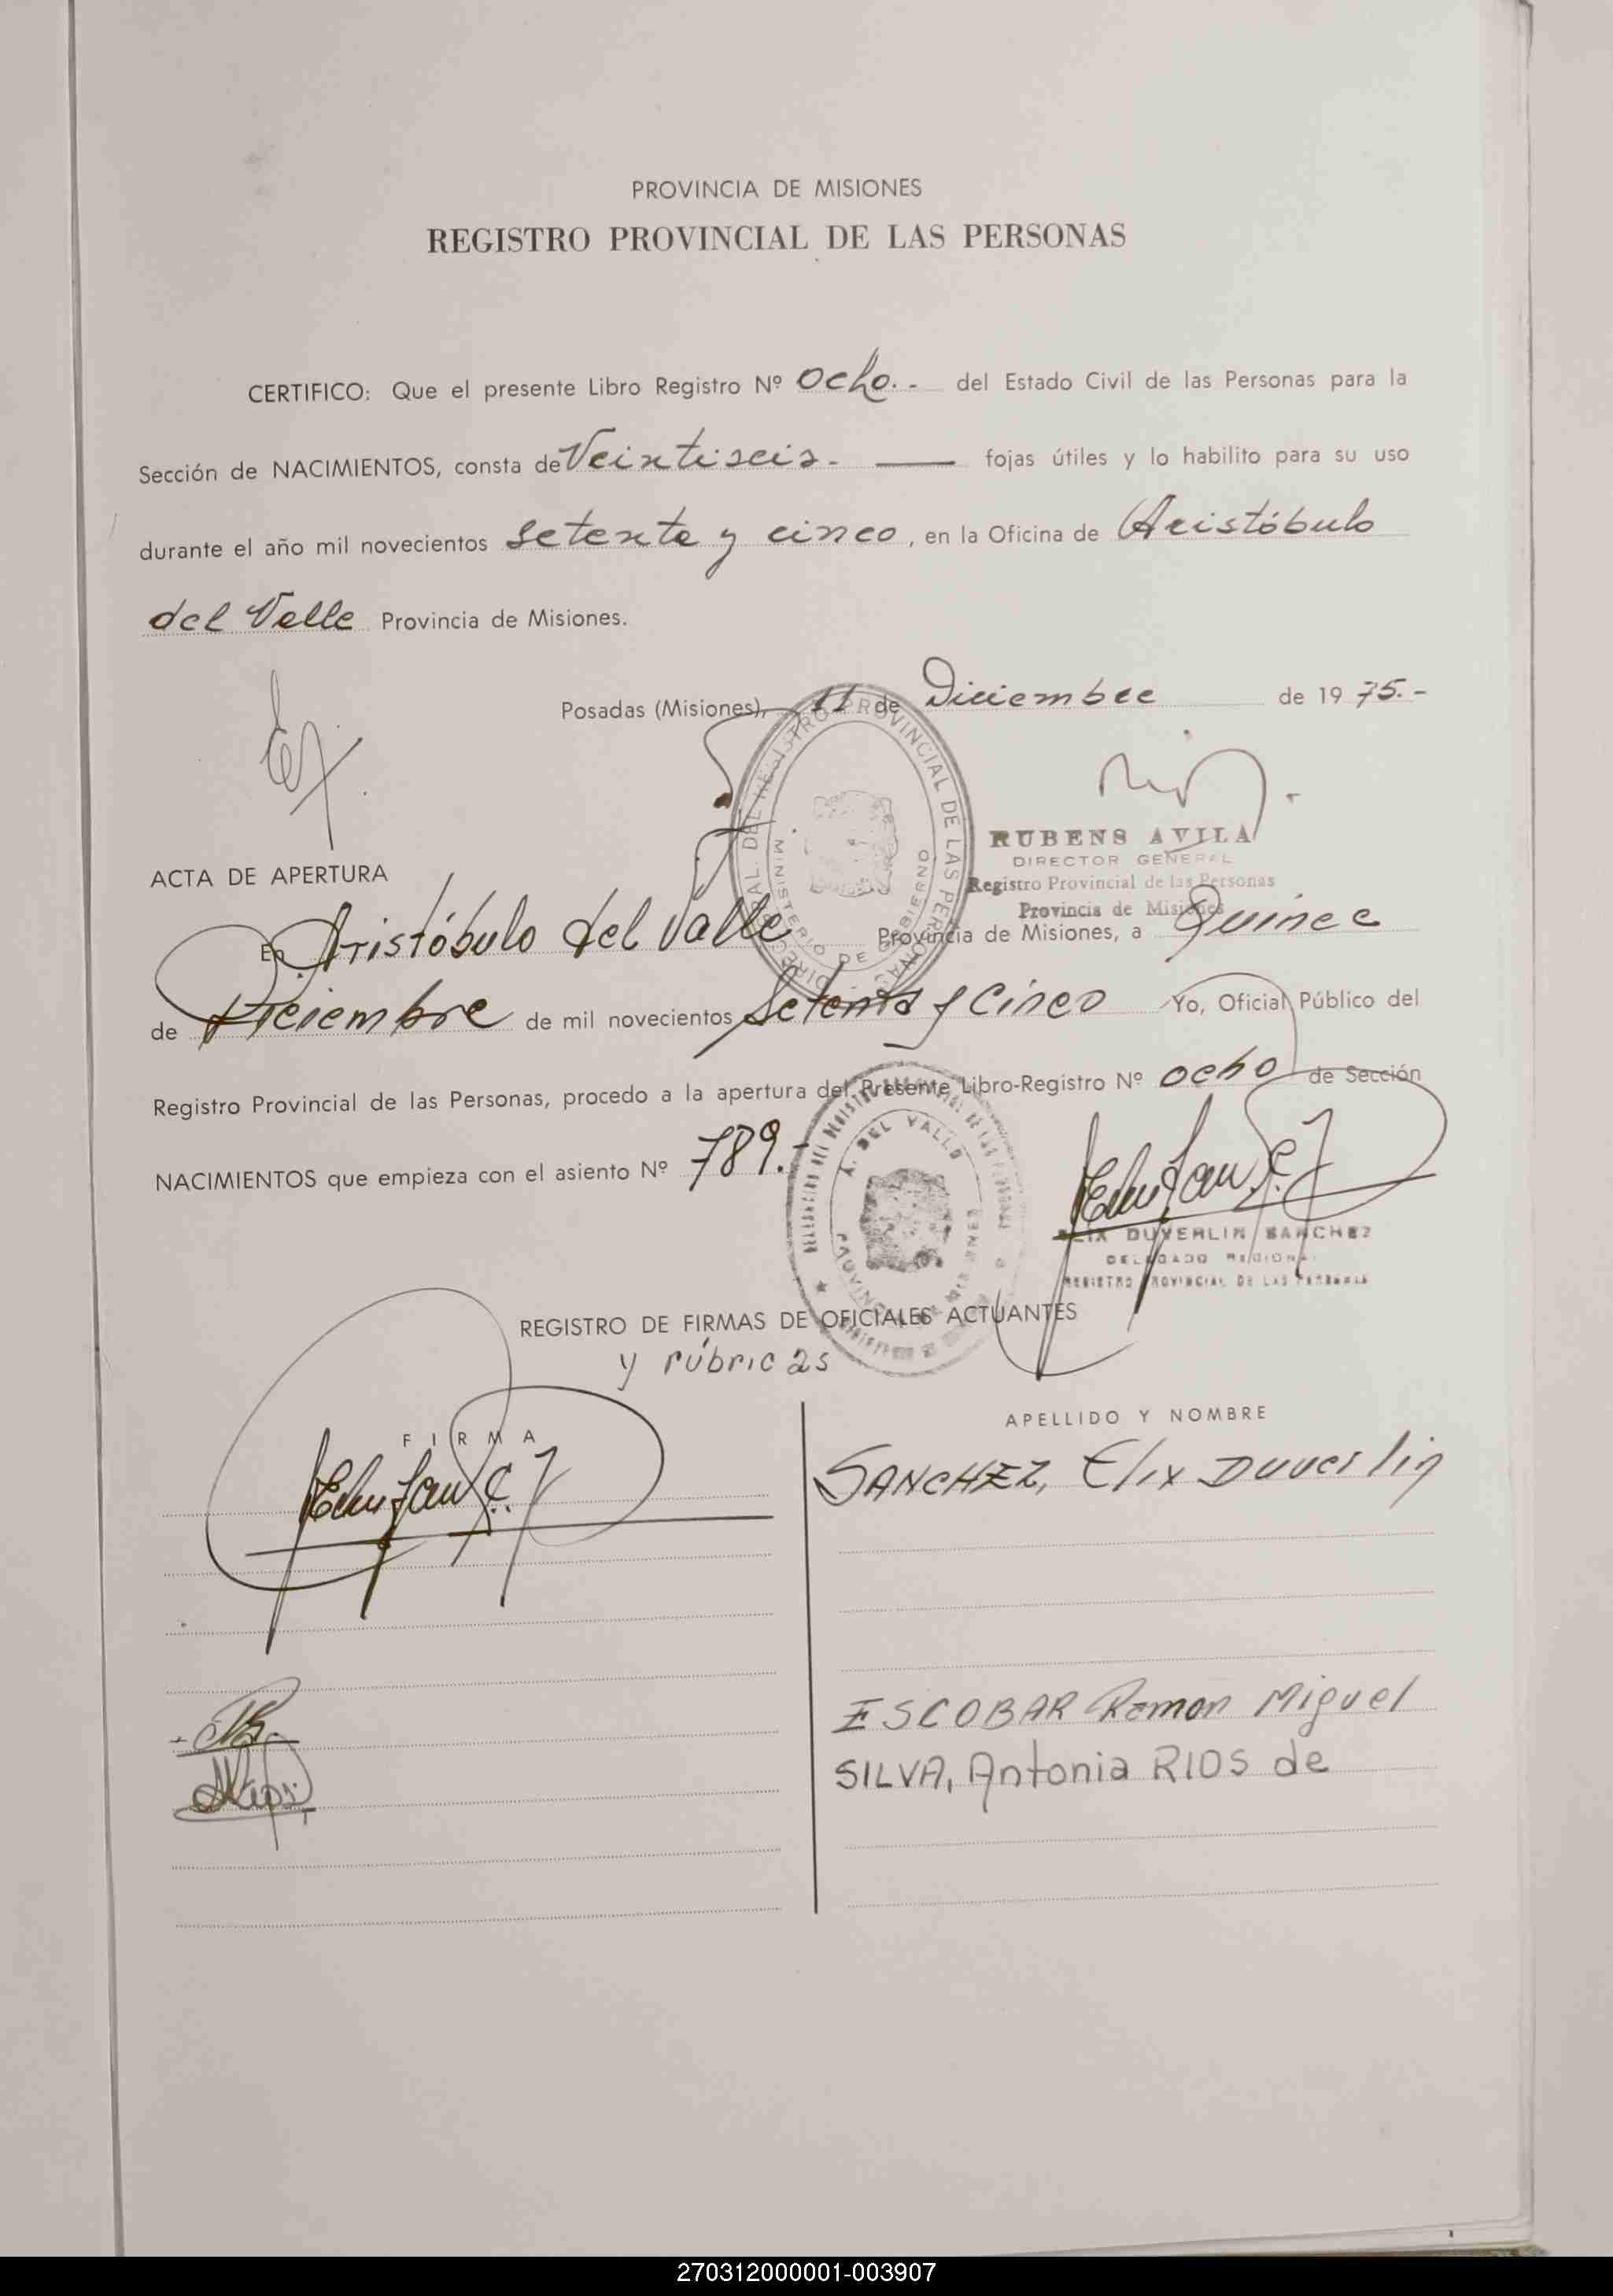 PROVINCIA DE MISIONES
REGISTRO PROVINCIAL DE LAS PERSONAS
CERTIFICO: Que el presente Libro Registro Nº Ocho.- del Estado Civil de las Personas para la
Sección de NACIMIENTOS, consta de Veintiseis.- fojas útiles y lo habilito para su uso
durante el año mil novecientos setenta y cinco, en la Oficina de Aristóbulo
del Valle Provincia de Misiones.
Posadas (Misiones), 11 de Diciembre de 1975.-
DIRECCION GENERAL DEL REGISTRO PROVINCIAL DE LAS PERSONAS
MINISTERIO DE GOBIERNO
RUBENS AVILA
DIRECTOR GENERAL
Registro Provincial de las Personas
Provincia de Misiones
ACTA DE APERTURA
En Aristóbulo del Valle Provincia de Misiones, a Quince
de Diciembre de mil novecientos Setenta y Cinco Yo, Oficial Público del
Registro Provincial de las Personas, procedo a la apertura del Presente Libro-Registro Nº ocho de Sección
NACIMIENTOS que empieza con el asiento Nº 789.-
A. DEL VALLE
ELIX DUVERLIN SANCHEZ
DELEGADO REGIONAL
REGISTRO PROVINCIAL DE LAS PERSONAS
REGISTRO DE FIRMAS DE OFICIALES ACTUANTES
y rúbricas
FIRMA
APELLIDO Y NOMBRE
SANCHEZ, Elix Duverlin
ESCOBAR Ramon Miguel
SILVA, Antonia RIOS de
270312000001-003907